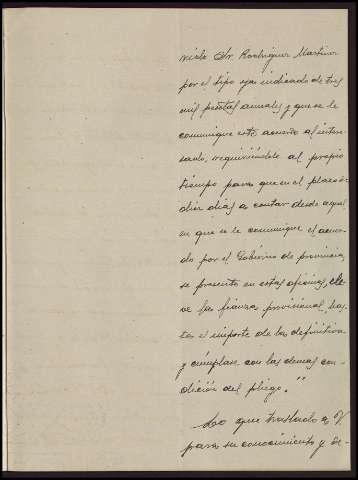 Sr. Rodríguez Martínez
por el tipo ya indicado de tres
mil pesetas anuales y que se le
comunique este acuerdo al intere-
sado, requiriéndole al propio
tiempo para que en el plazo de
diez días a contar desde aquel
en que se le comunique el acuer-
do por el Gobierno de provincia,
se presente en estas oficinas, ele-
ve la fianza provisional has-
ta el importe de la definitiva
y cumplan con las demas con-
dición del pliego."
Lo que traslado a V.
para su conocimiento y de-